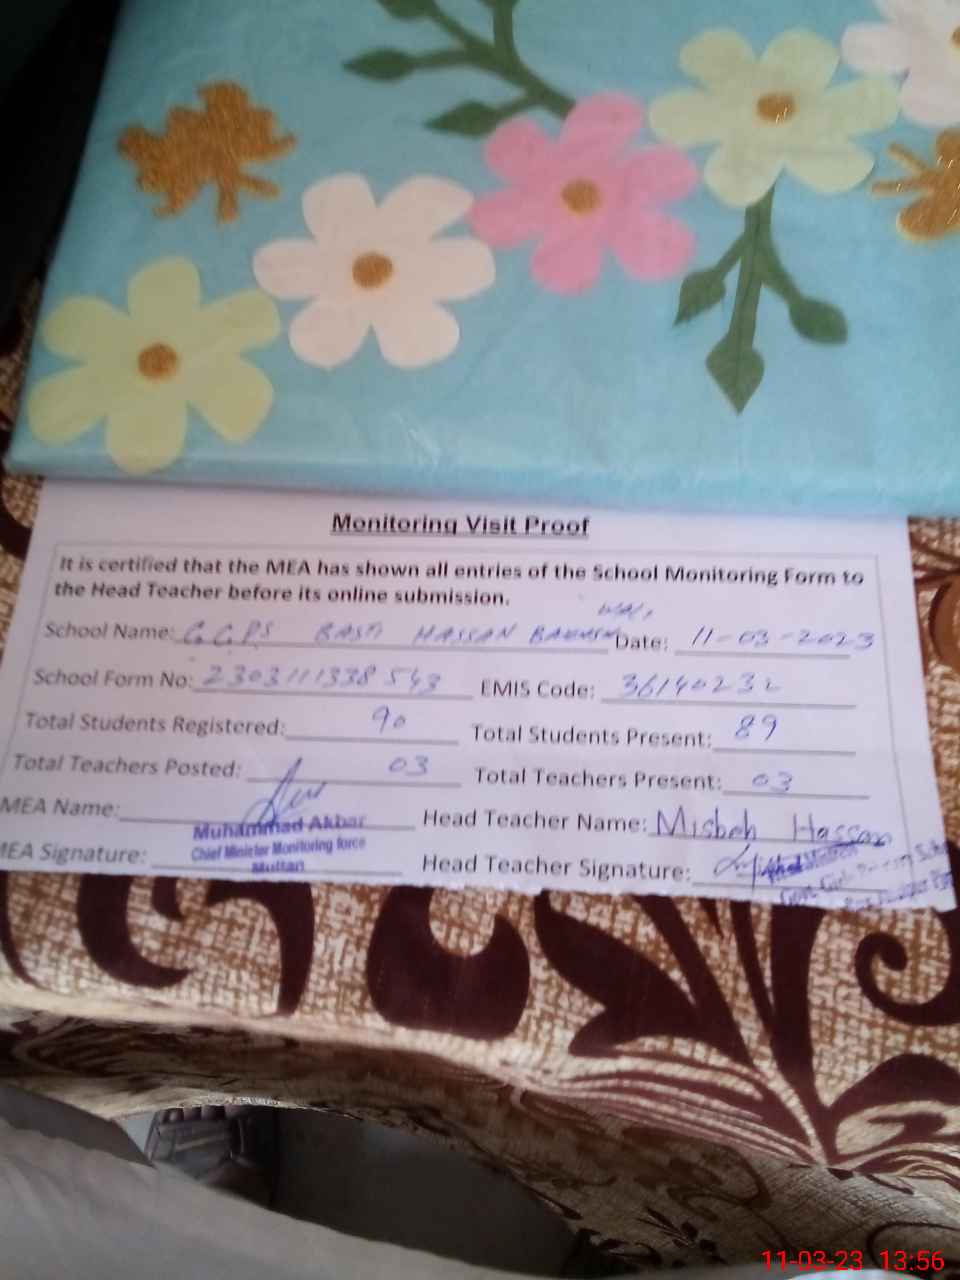 Monitoring Visit Proof
It is certified that the MEA has shown all entries of the School Monitoring Form to
the Head Teacher before its online submission.
School Name: G.G.P.S BASTI HASSAN Date: 11-03-2023
School Form No: 2303111338543 EMIS Code: 36140232
Total Students Registered: 90 Total Students Present: 89
Total Teachers Posted: 03 Total Teachers Present: 03
MEA Name: Head Teacher Name: Misbah Hassan
Muhammad Akbar
Chief Minister Monitoring force
Multan
MEA Signature: Head Teacher Signature:
Govt. Girls Primary
11-03-23 13:56